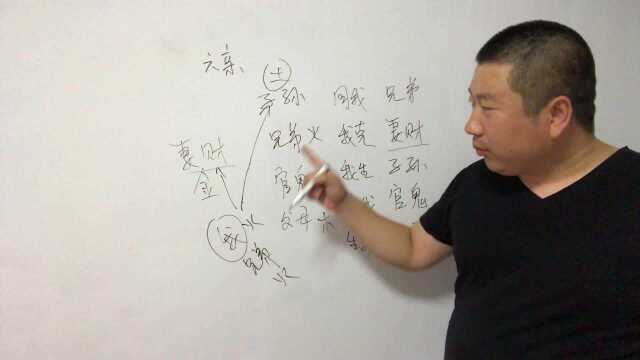 六亲
土
子孙 同我 兄弟
兄弟 火 我克 妻财
妻财
官鬼 我生 子孙
金
官鬼
父母 木
我 火